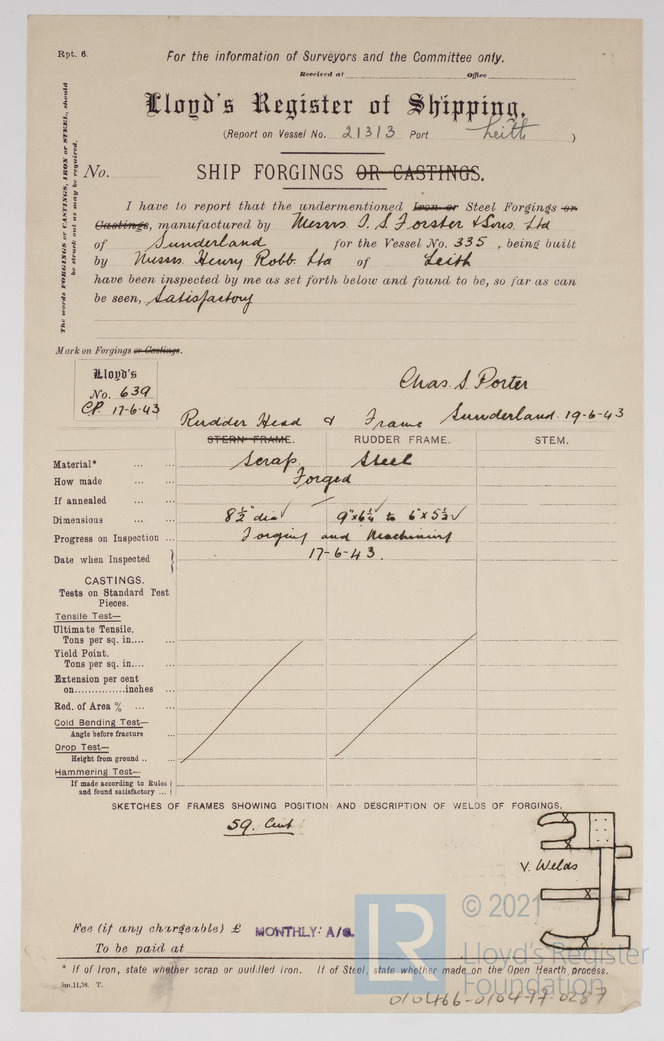 Rpt. 6.
For the information of Surveyors and the Committee only.
Received at Office
Lloyd's Register of Shipping.
(Report on Vessel No. 21313 Port Leith )
The words FORGINGS or CASTINGS, IRON or STEEL, should
be struck out as may be required.
No. SHIP FORGINGS OR CASTINGS.
I have to report that the undermentioned Iron or Steel Forgings or
Castings, manufactured by Messrs. T. S. Forster & Sons. Ltd
of Sunderland for the Vessel No. 335, being built
by Messrs. Henry Robb. Ltd of Leith
have been inspected by me as set forth below and found to be, so far as can
be seen, Satisfactory
Mark on Forgings or Castings.
Lloyd's
No. 639
CP. 17-6-43
Chas. S. Porter
Sunderland. 19-6-43
Rudder Head & Frame
STERN FRAME. RUDDER FRAME. STEM.
Material* ... ... Scrap Steel
How made ... ... Forged
If annealed ...
Dimensions ... ... 8½" dia 9"x6¼ to 6"x5½
Progress on Inspection ... Forging and Machining
Date when Inspected } 17-6-43.
CASTINGS.
Tests on Standard Test
Pieces.
Tensile Test—
Ultimate Tensile.
Tons per sq. in.... ...
Yield Point.
Tons per sq. in.... ...
Extension per cent
on..............inches ...
Red. of Area % ... ...
Cold Bending Test—
Angle before fracture ...
Drop Test—
Height from ground .. ...
Hammering Test—
If made according to Rules
and found satisfactory ...
SKETCHES OF FRAMES SHOWING POSITION AND DESCRIPTION OF WELDS OF FORGINGS.
59. Cwt
V. Welds
Fee (if any chargeable) £ MONTHLY: A/C.
To be paid at
* If of Iron, state whether scrap or puddled iron. If of Steel, state whether made on the Open Hearth process.
Jan.11,38. T.
LR
© 2021
Lloyd's Register
Foundation
010466-010477-0287